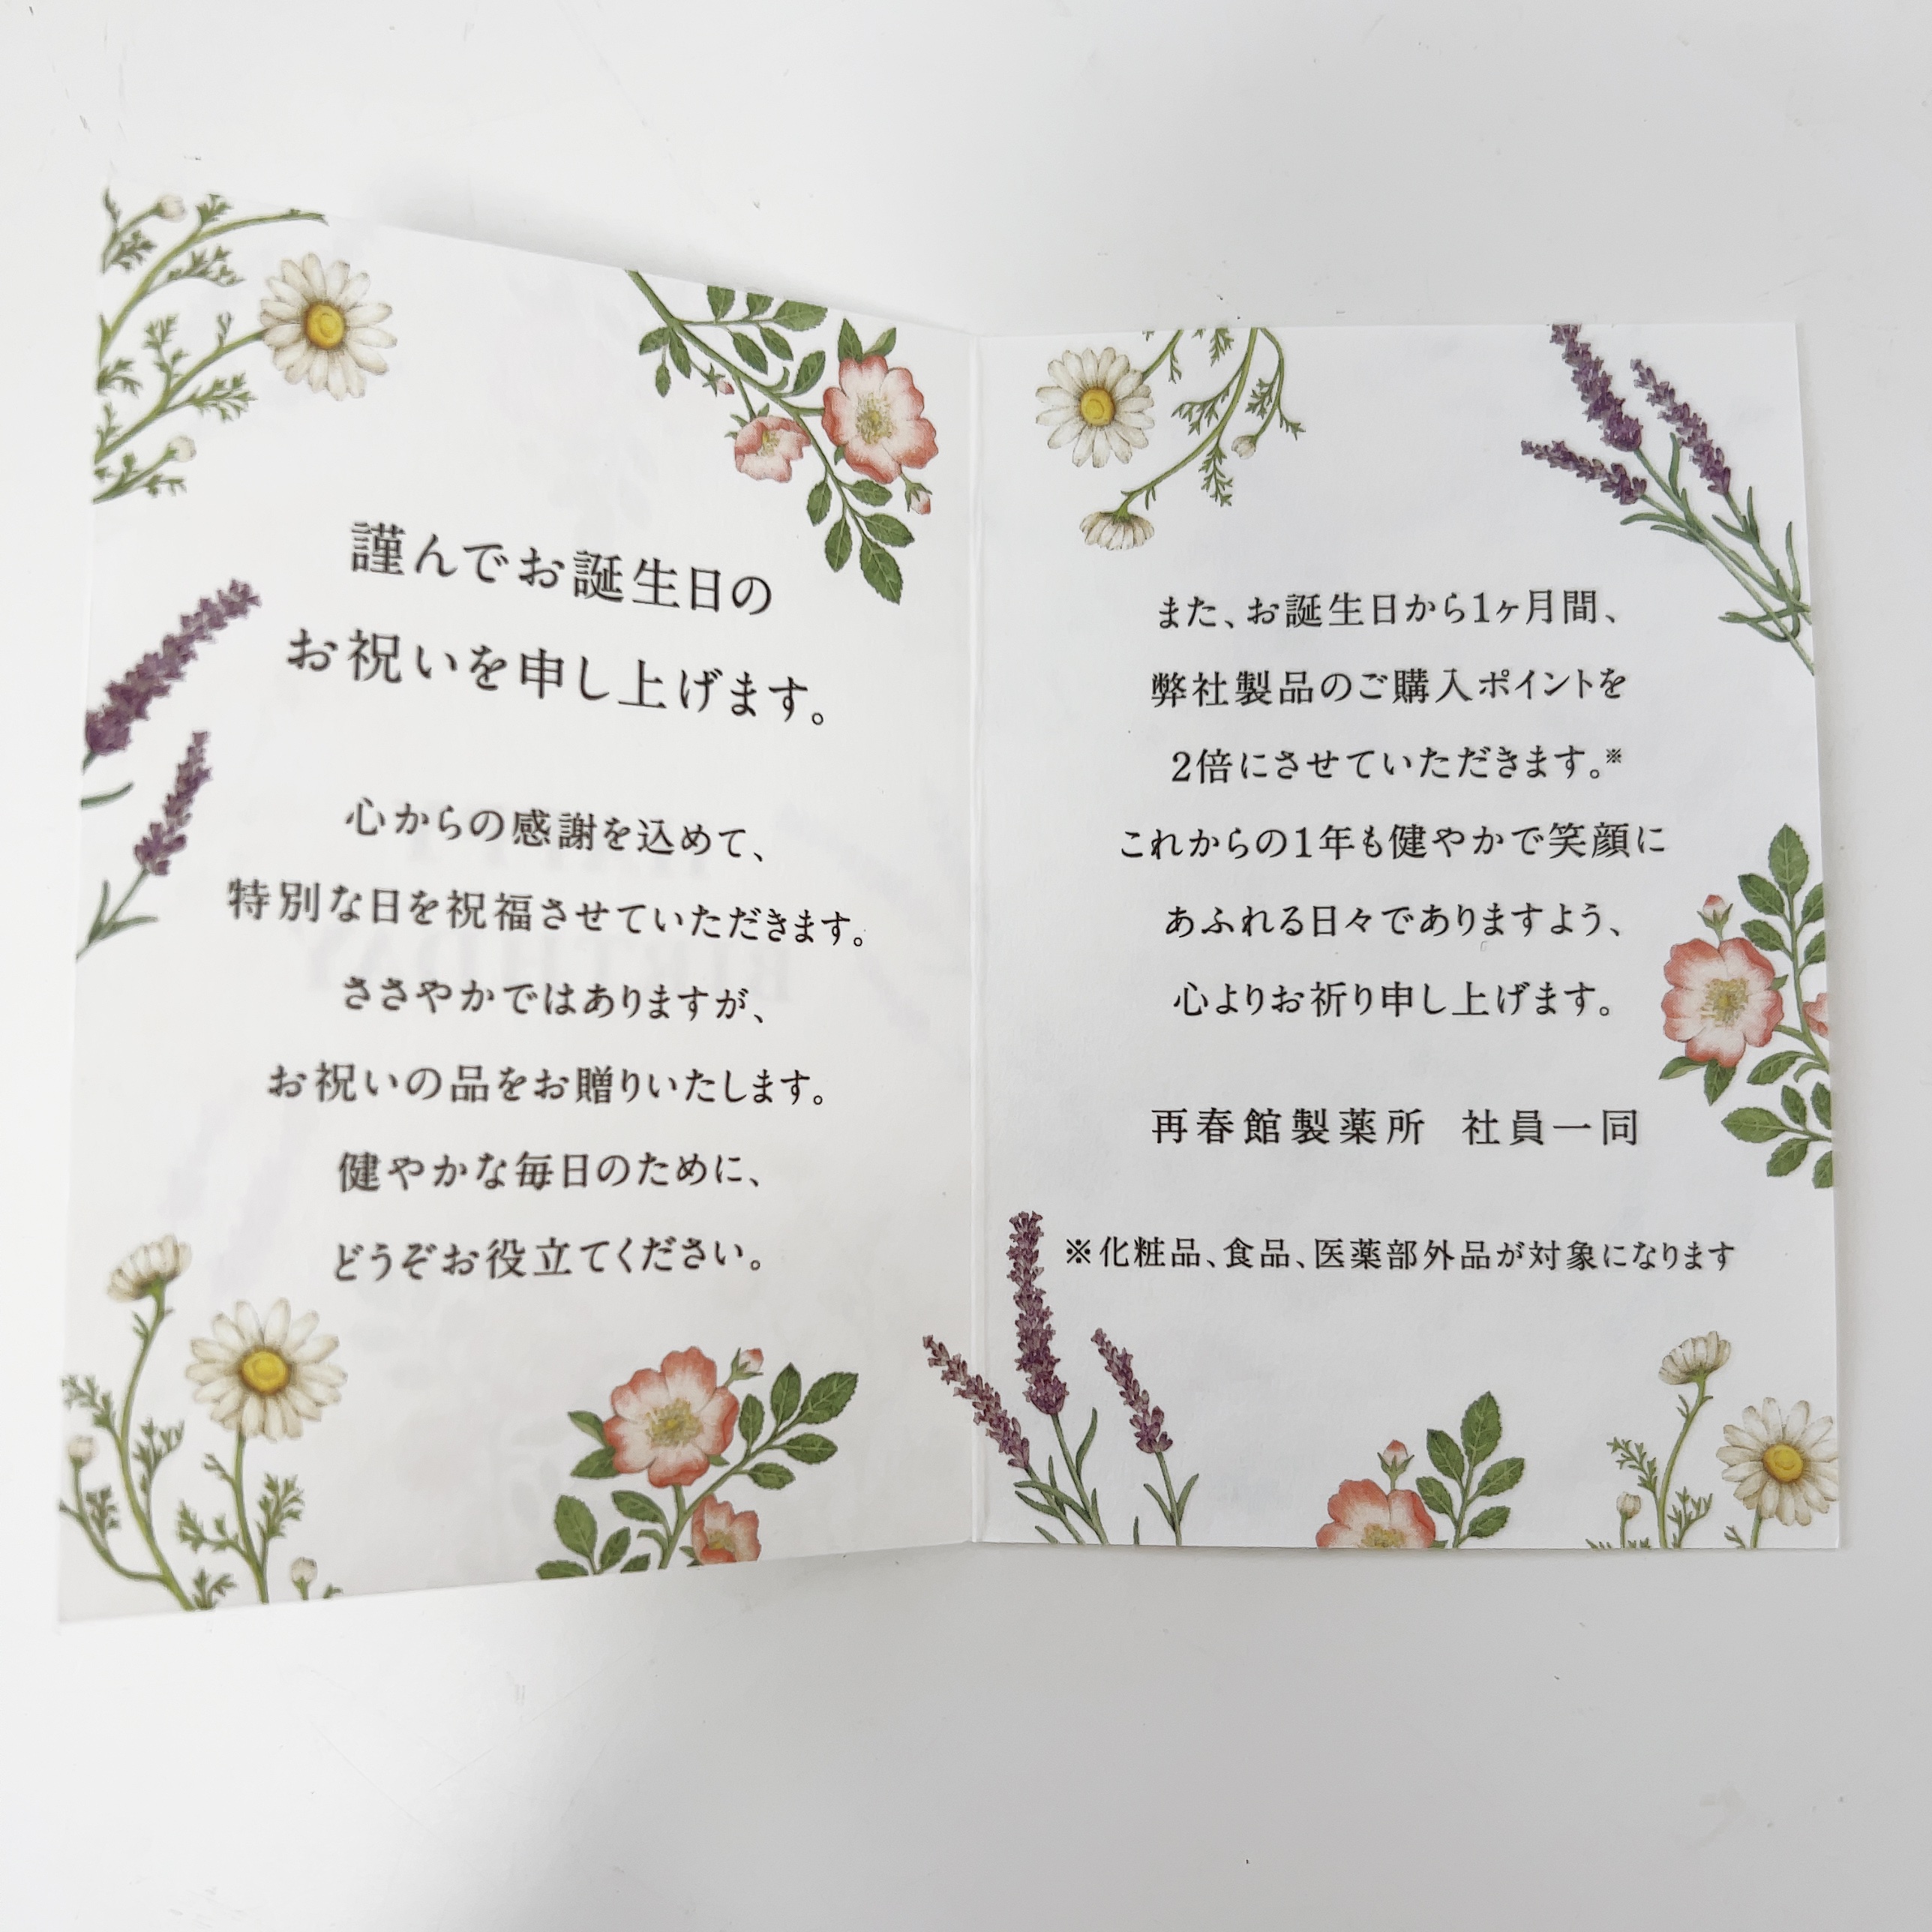 謹んでお誕生日の
お祝いを申し上げます。
心からの感謝を込めて、
特別な日を祝福させていただきます。
ささやかではありますが、
お祝いの品をお贈りいたします。
健やかな毎日のために、
どうぞお役立てください。
また、お誕生日から1ヶ月間、
弊社製品のご購入ポイントを
2倍にさせていただきます。※
これからの1年も健やかで笑顔に
あふれる日々でありますよう、
心よりお祈り申し上げます。
再春館製薬所 社員一同
※化粧品、食品、医薬部外品が対象になります